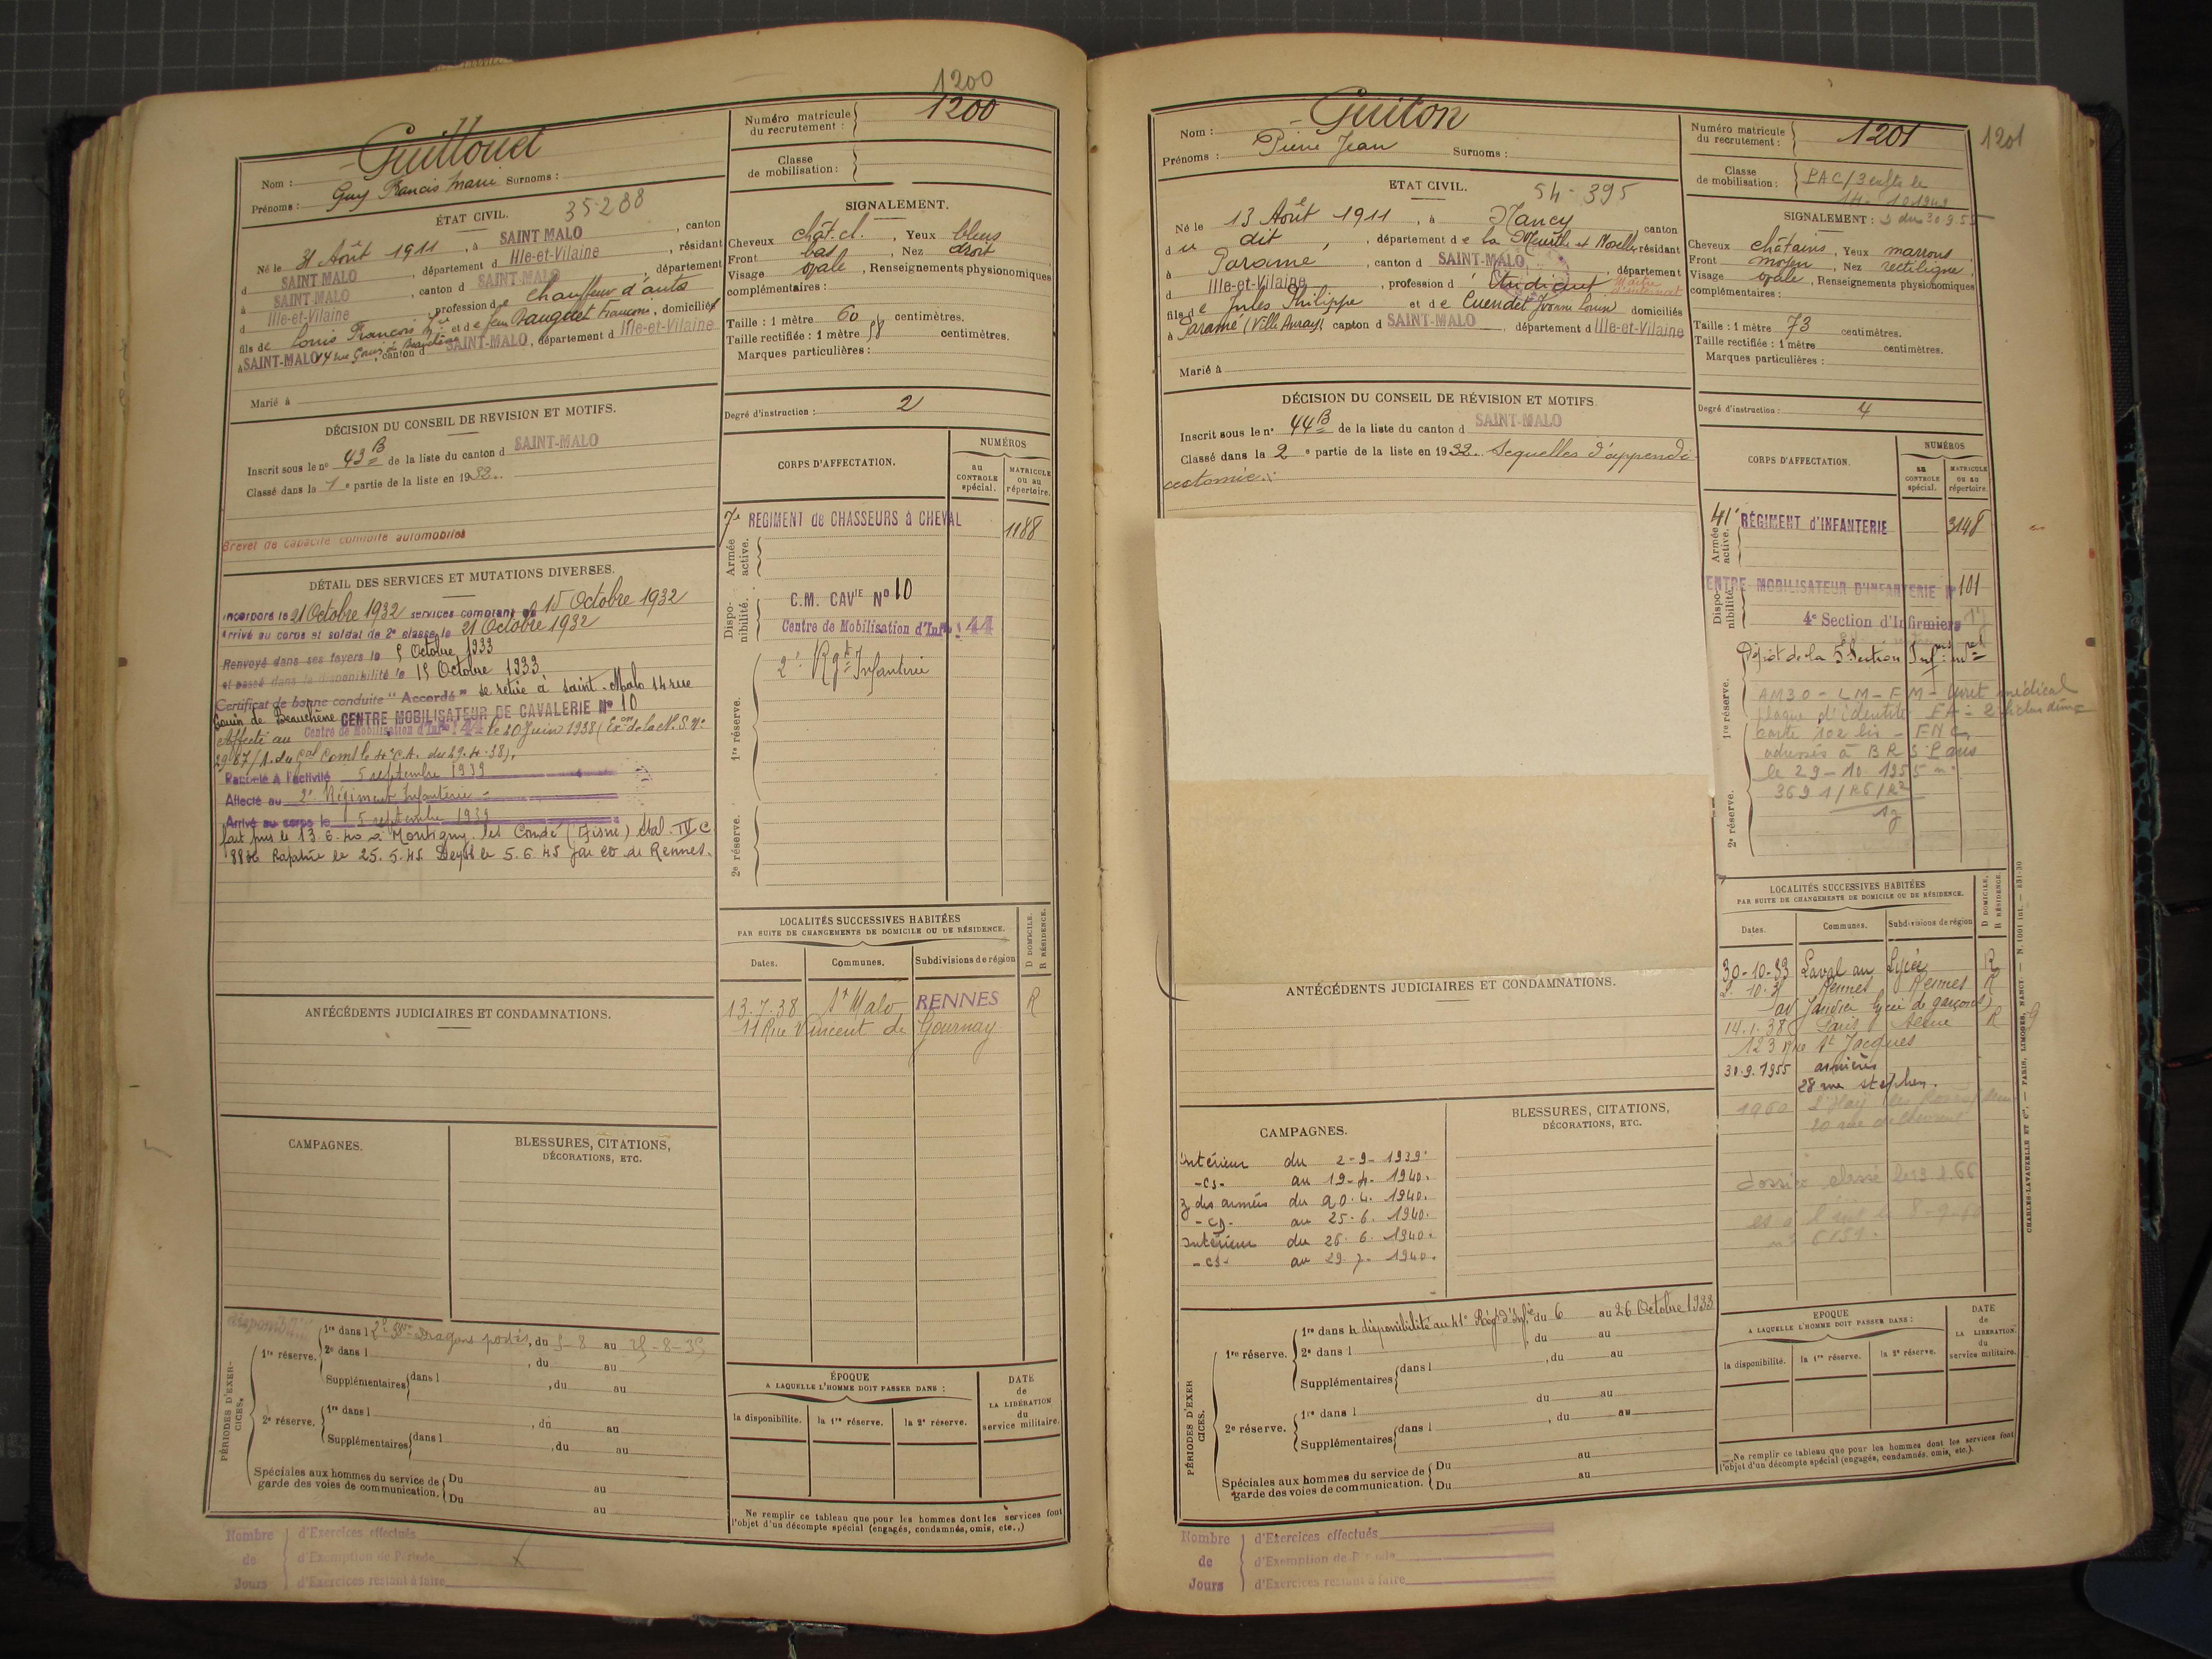 1200
Nom : Guillouet
Prénoms : Guy Francis Marie Surnoms :
Numéro matricule du recrutement : 1200
Classe de mobilisation :
ÉTAT CIVIL. 35-288
Né le 31 Août 1911, à SAINT MALO, canton
d SAINT MALO, département d Ille-et-Vilaine, résidant
à SAINT MALO, canton d SAINT MALO, département
d Ille-et-Vilaine, profession de Chauffeur d'auto
fils de Louis François et de feu Françoise, domiciliés
à SAINT-MALO 14 rue, canton d SAINT-MALO, département d Ille-et-Vilaine
Marié à
SIGNALEMENT.
Cheveux chât. cl., Yeux bleus
Front bas, Nez droit
Visage ovale, Renseignements physionomiques
complémentaires :
Taille : 1 mètre 60 centimètres.
Taille rectifiée : 1 mètre 58 centimètres.
Marques particulières :
Degré d'instruction : 2
DÉCISION DU CONSEIL DE RÉVISION ET MOTIFS.
Inscrit sous le n° 43 B de la liste du canton d SAINT-MALO
Classé dans la 1e partie de la liste en 1932.
Brevet de capacité conduite automobiles
DÉTAIL DES SERVICES ET MUTATIONS DIVERSES.
Incorporé le 21 Octobre 1932 services comptant du 15 Octobre 1932
Arrivé au corps et soldat de 2e classe le 21 Octobre 1932
Renvoyé dans ses foyers le 5 Octobre 1933
et passé dans la disponibilité le 15 Octobre 1933
Certificat de bonne conduite "Accordé" se retire à Saint-Malo 14 rue
Gouin de Beauchêne CENTRE MOBILISATEUR DE CAVALERIE N° 10
Affecté au Centre de Mobilisation d'Infie 44 le 20 Juin 1938 (Exon de la N.S. N°
2967/1. du Gal Comt le 4e C.A. du 29.4.38).
Rappelé à l'activité 5 septembre 1939
Affecté au 2e Régiment Infanterie
Arrivé au corps le 5 septembre 1939
fait pris le 13.6.40 à Montigny les Condé (Aisne) Stal. IV C
Rapatrié le 25.5.45 le 5.6.45 par de Rennes.
CORPS D'AFFECTATION.
NUMÉROS
au CONTROLE spécial.
MATRICULE ou au répertoire.
Armée active.
7e REGIMENT de CHASSEURS à CHEVAL 1188
Disponibilité.
C.M. CAVIE N° 10
Centre de Mobilisation d'Infie 44
1re réserve.
2e Rgt Infanterie
2e réserve.
LOCALITÉS SUCCESSIVES HABITÉES
PAR SUITE DE CHANGEMENTS DE DOMICILE OU DE RÉSIDENCE.
D DOMICILE. R RÉSIDENCE.
Dates. Communes. Subdivisions de région
13.7.38 St Malo RENNES R
11 Rue Vincent de Gournay
ANTÉCÉDENTS JUDICIAIRES ET CONDAMNATIONS.
CAMPAGNES.
BLESSURES, CITATIONS, DÉCORATIONS, ETC.
PÉRIODES D'EXERCICES.
disponibilité
1re réserve. 1re dans l Dragons portés, du 5-8 au 25-8-35
2e dans l , du au
Supplémentaires dans l , du au
2e réserve. 1re dans l , du au
Supplémentaires dans l , du au
Spéciales aux hommes du service de garde des voies de communication. Du au
Du au
ÉPOQUE
A LAQUELLE L'HOMME DOIT PASSER DANS :
la disponibilité. la 1re réserve. la 2e réserve.
DATE de LA LIBÉRATION du service militaire.
Ne remplir ce tableau que pour les hommes dont les services font
l'objet d'un décompte spécial (engagés, condamnés, omis, etc.,)
Nombre de Jours
d'Exercices effectués
d'Exemption de Période
d'Exercices restant à faire
Nom : Guiton
Prénoms : Pierre Jean Surnoms :
Numéro matricule du recrutement : 1201
1201
Classe de mobilisation : PAC/3 enfts le
du 30.9.55
ETAT CIVIL. 54-395
Né le 13 Août 1911, à Nancy canton
du dit, département de la Meurthe et Moselle, résidant
à Paramé, canton d SAINT-MALO, département
d Ille-et-Vilaine, profession d'Etudiant Maître d'internat
fils de Jules Philippe et de Cuendet Yvonne domiciliés
à Paramé (Ville Auray) canton d SAINT-MALO, département d Ille-et-Vilaine
Marié à
SIGNALEMENT :
Cheveux châtains, Yeux marrons
Front moyen, Nez rectiligne,
Visage ovale, Renseignements physionomiques
complémentaires :
Taille : 1 mètre 73 centimètres.
Taille rectifiée : 1 mètre centimètres.
Marques particulières :
Degré d'instruction : 4
DÉCISION DU CONSEIL DE RÉVISION ET MOTIFS
Inscrit sous le n° 44 B de la liste du canton d SAINT-MALO
Classé dans la 2e partie de la liste en 1932. Sequelles d'appendi-
cectomie.
CORPS D'AFFECTATION.
NUMÉROS
au CONTROLE spécial.
MATRICULE ou au répertoire.
Armée active.
41e RÉGIMENT d'INFANTERIE 3148
Disponibilité.
CENTRE MOBILISATEUR D'INFANTERIE N° 101
4e Section d'Infirmiers
Dépôt de la 5e Section Infiers milres
1re réserve.
AM30 - LM - FM - livret médical
plaque d'identité FA - 2
carte 102 bis - FNC
adressés à BRS Paris
le 29-10 1955 n°
3691/R6/R2
2e réserve.
LOCALITÉS SUCCESSIVES HABITÉES
PAR SUITE DE CHANGEMENTS DE DOMICILE OU DE RÉSIDENCE.
D DOMICILE, R RÉSIDENCE.
Dates. Communes. Subdivisions de région
30-10-33 Laval au Lycée R
Rennes Rennes R
av Janvier lycée de garçons)
14.1.38 Paris Seine R
123 rue St Jacques
30.9.1955 asnières
28 rue stephen.
1960 L'Haÿ les Roses
dossier classé
ANTÉCÉDENTS JUDICIAIRES ET CONDAMNATIONS.
CAMPAGNES.
Intérieur du 2-9-1939
-CS- au 19-4-1940.
Z des armées du 20.4.1940.
-CD- au 25.6.1940.
Intérieur du 26.6.1940.
-CS- au 29.7.1940.
BLESSURES, CITATIONS, DÉCORATIONS, ETC.
PÉRIODES D'EXERCICES.
1re réserve. 1re dans la disponibilité au 41e Régt d'Infie du 6 au 26 Octobre 1933
2e dans l , du au
Supplémentaires dans l , du au
2e réserve. 1re dans l du au
Supplémentaires dans l , du au
Spéciales aux hommes du service de garde des voies de communication. Du au
Du au
EPOQUE
A LAQUELLE L'HOMME DOIT PASSER DANS :
la disponibilité. la 1re réserve. la 2e réserve.
DATE de LA LIBÉRATION du service militaire.
Ne remplir ce tableau que pour les hommes dont les services font
l'objet d'un décompte spécial (engagés, condamnés, omis, etc.).
CHARLES-LAVAUZELLE ET Cie. — PARIS, LIMOGES, NANCY.
Nombre de Jours
d'Exercices effectués
d'Exemption de Période
d'Exercices restant à faire